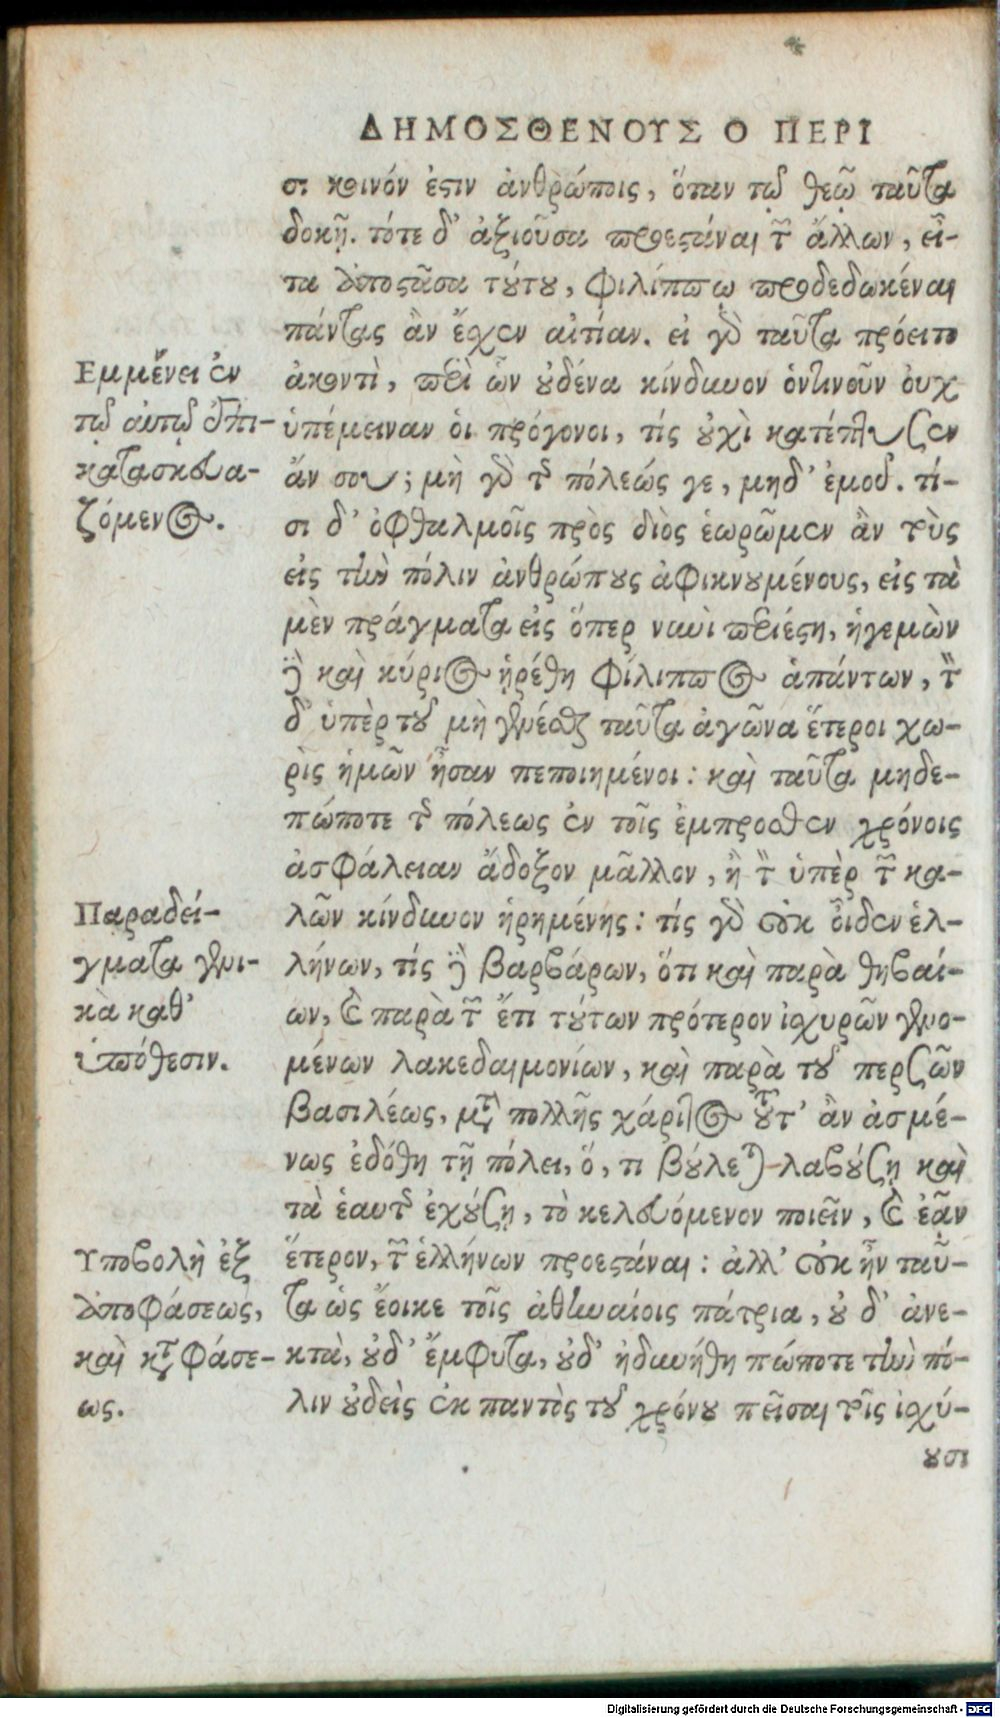 ΔΗΜΟΣΘΕΝΟΥΣ Ο ΠΕΡΙ
σι κοινόν ἐστιν ἀνθρώποις, ὅταν τῷ θεῷ ταῦτα
δοκῇ. τότε δ' ἀξιοῦσα προεστάναι τῶν ἄλλων, εἶ-
τα ἀποστᾶσα τούτου, φιλίππῳ προδεδωκέναι
πάντας ἂν ἔχεν αἰτίαν. εἰ γὰρ ταῦτα πρόειτο
ἀκονιτὶ, περὶ ὧν οὐδένα κίνδυνον ὁντινοῦν ὀυχ
ὑπέμειναν ὁι πρόγονοι, τίς οὐχὶ κατέπτυσεν
ἄν σου; μὴ γὰρ τῆς πόλεώς γε, μηδ' ἐμοῦ. τί-
σι δ' ὀφθαλμοῖς πρὸς διὸς ἑωρῶμεν ἂν τοὺς
εἰς τὴν πόλιν ἀνθρώπους ἀφικνουμένους, εἰς τὰ
μὲν πράγματα εἰς ὅπερ νυνὶ περιέστη, ἡγεμὼν
δὲ καὶ κύριος ᾑρέθη φίλιππος ἁπάντων, τὸν
δ' ὑπὲρ τοῦ μὴ γενέσθαι ταῦτα ἀγῶνα ἕτεροι χω-
ρὶς ἡμῶν ἦσαν πεποιημένοι: καὶ ταῦτα μηδε-
πώποτε τῆς πόλεως ἐν τοῖς ἔμπροσθεν χρόνοις
ἀσφάλειαν ἄδοξον μᾶλλον, ἢ τὸν ὑπὲρ τῶν κα-
λῶν κίνδυνον ᾑρημένης: τίς γὰρ οὐκ οἶδεν ἑλ-
λήνων, τίς δὲ βαρβάρων, ὅτι καὶ παρὰ θηβαί-
ων, καὶ παρὰ τῶν ἔτι τούτων πρότερον ἰσχυρῶν γενο-
μένων λακεδαιμονίων, καὶ παρὰ τοῦ περσῶν
βασιλέως, μετὰ πολλῆς χάριτος τοῦτ' ἂν ἀσμέ-
νως ἐδόθη τῇ πόλει, ὅ, τι βούλεται λαβούσῃ καὶ
τὰ ἑαυτῆς ἐχούσῃ, τὸ κελευόμενον ποιεῖν, καὶ ἐᾷν
ἕτερον, τῶν ἑλλήνων προεστάναι: ἀλλ' οὐκ ἦν ταῦ-
τα ὡς ἔοικε τοῖς ἀθηναίοις πάτρια, οὐ δ' ἀνε-
κτὰ, οὐδ' ἔμφυτα, οὐδ' ἠδυνήθη πώποτε τὴν πό-
λιν οὐδεὶς ἐκ παντὸς τοῦ χρόνου πεῖσαι τοῖς ἰσχύ-
ουσι
Εμμένει ἐν
τῷ αὐτῷ ἐπι-
κατασκευα-
ζόμενος.
Παραδεί-
γματα γενι-
κὰ καθ'
ὑπόθεσιν.
Υποβολὴ ἐξ
ἀποφάσεως,
καὶ κατὰ φάσε-
ως.
Digitalisierung gefördert durch die Deutsche Forschungsgemeinschaft - DFG